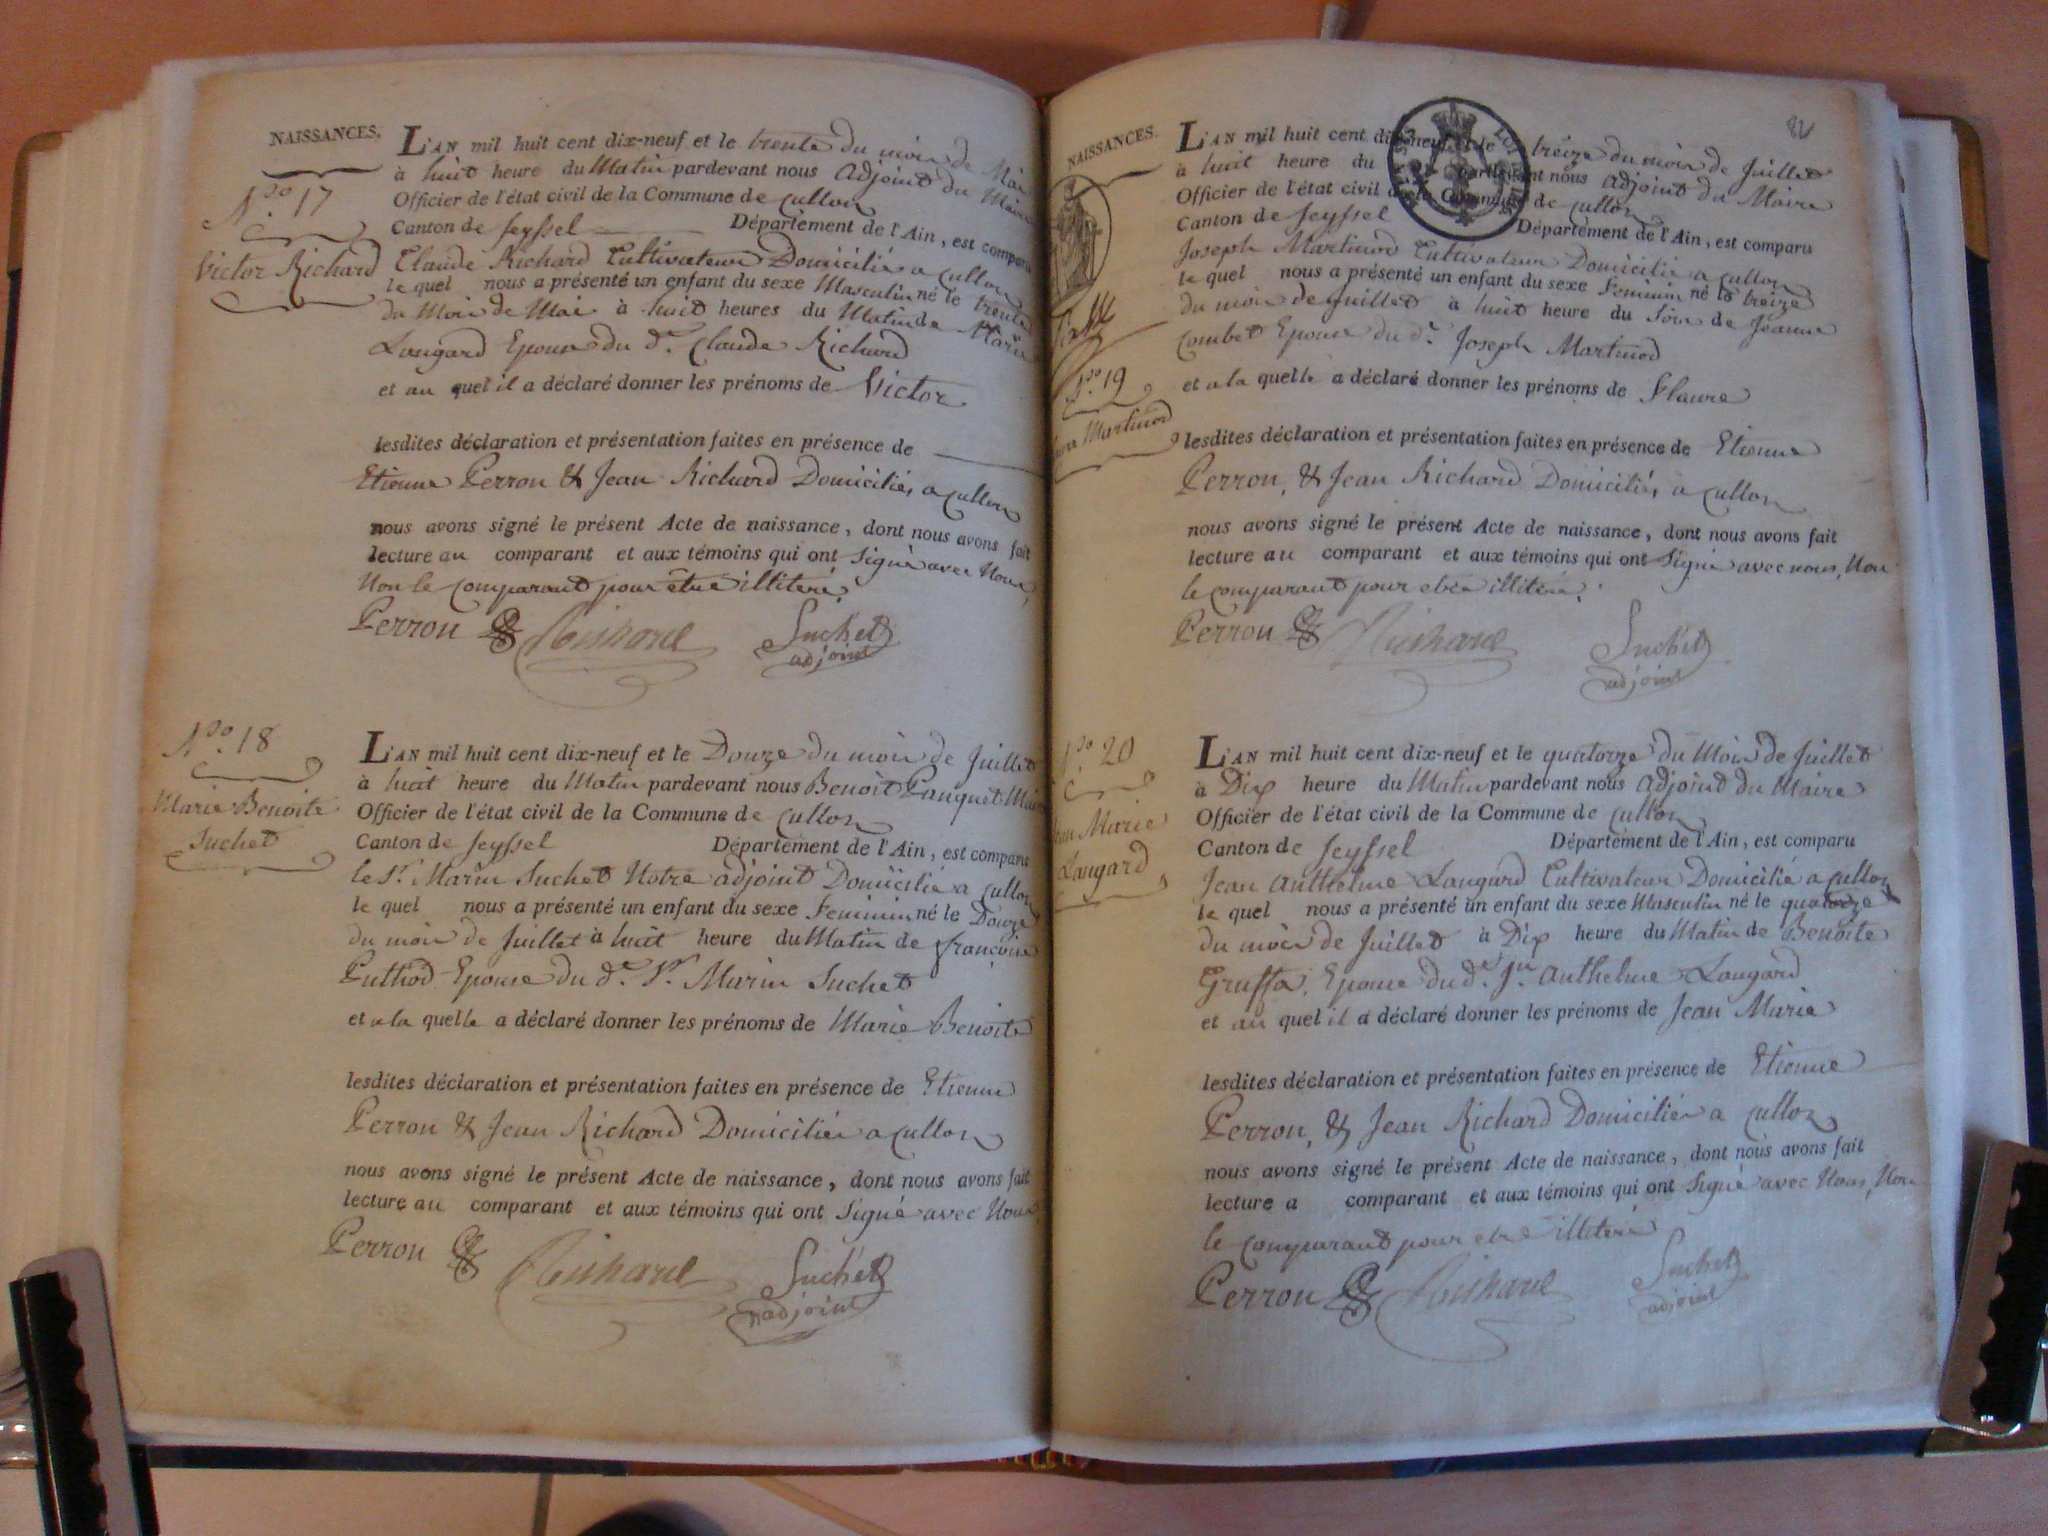 NAISSANCES.
N.º 17
Victor Richard
L'AN mil huit cent dix-neuf et le trente du mois de Mai
à huit heure du Matin pardevant nous Adjoint du Maire
Officier de l'état civil de la Commune de Culloz
Canton de Seyssel Département de l'Ain, est comparu
Claude Richard Cultivateur Domicilié a Culloz
le quel nous a présenté un enfant du sexe Masculin né le trente
du Mois de Mai à huit heures du Matin de Marie
Longard Epouse du d.t Claude Richard
et au quel il a déclaré donner les prénoms de Victor
lesdites déclaration et présentation faites en présence de
Etienne Perron & Jean Richard Domiciliés a Culloz
nous avons signé le présent Acte de naissance, dont nous avons fait
lecture au comparant et aux témoins qui ont Signé avec Nous,
Non le comparant pour être illiteré.
Perron Richard Suchet
adjoint
N.º 18
Marie Benoite
Suchet
L'AN mil huit cent dix-neuf et le Douze du mois de Juillet
à huit heure du Matin pardevant nous Benoit Panquet Maire
Officier de l'état civil de la Commune de Culloz
Canton de Seyssel Département de l'Ain, est comparu
le S.r Marin Suchet Notre adjoint Domicilié a Culloz
le quel nous a présenté un enfant du sexe Feminin né le Douze
du mois de Juillet à huit heure du Matin de françoise
Puthod Epouse du d.t S.r Marin Suchet
et a la quelle a déclaré donner les prénoms de Marie Benoite
lesdites déclaration et présentation faites en présence de Etienne
Perron & Jean Richard Domiciliés a Culloz
nous avons signé le présent Acte de naissance, dont nous avons fait
lecture au comparant et aux témoins qui ont Signé avec Nous.
Perron Richard Suchet
adjoint
82
NAISSANCES.
19
Martinod
L'AN mil huit cent dix-neuf et le treize du mois de Juillet
à huit heure du pardevant nous Adjoint du Maire
Officier de l'état civil de la Commune de Culloz
Canton de Seyssel Département de l'Ain, est comparu
Joseph Martinod Cultivateur Domicilié a Culloz
le quel nous a présenté un enfant du sexe Feminin né le treize
du mois de Juillet à huit heure du Soir de Jeanne
Combet Epouse du d.t Joseph Martinod
et a la quelle a déclaré donner les prénoms de Flaure
lesdites déclaration et présentation faites en présence de Etienne
Perron, & Jean Richard Domiciliés a Culloz
nous avons signé le présent Acte de naissance, dont nous avons fait
lecture au comparant et aux témoins qui ont Signé avec nous, Non
le comparant pour etre illiteré.
Perron Richard Suchet
adjoint
20
Marie
Longard
L'AN mil huit cent dix-neuf et le quatorze du Mois de Juillet
à Dix heure du Matin pardevant nous Adjoint du Maire
Officier de l'état civil de la Commune de Culloz
Canton de Seyssel Département de l'Ain, est comparu
Jean Anthelme Longard Cultivateur Domicilié a Culloz
le quel nous a présenté un enfant du sexe Masculin né le quatorze
du mois de Juillet à Dix heure du Matin de Benoite
Gruffa, Epouse du d.t J.n Anthelme Longard
et au quel il a déclaré donner les prénoms de Jean Marie
lesdites déclaration et présentation faites en présence de Etienne
Perron, & Jean Richard Domiciliés a Culloz
nous avons signé le présent Acte de naissance, dont nous avons fait
lecture a comparant et aux témoins qui ont Signé avec Nous, Non
le comparant pour etre illiteré
Perron Richard Suchet
adjoint